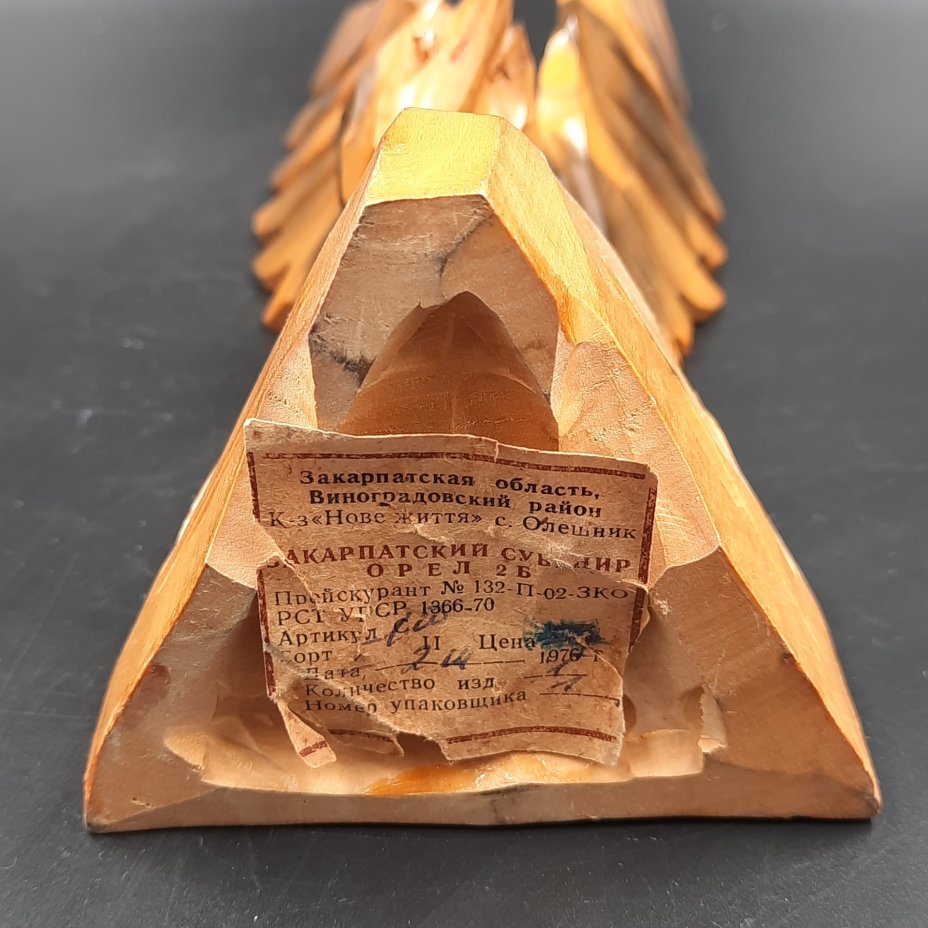 Закарпатская область,
Виноградовский район
К-з «Нове життя» с. Олешник
ЗАКАРПАТСКИЙ СУВЕНИР
ОРЕЛ 2Б
Прейскурант № 132-П-02-ЗКО
РСТ УРСР 1366-70
Артикул II Цена
Сорт 1976 г.
Дата,
Количество изд.
Номер упаковщика